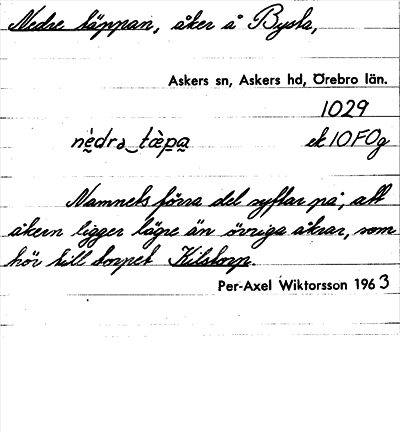 Nedre täppan, åker å Bysta,
Askers sn, Askers hd, Örebro län.
1029
nèdrə_tæ̀pa ek 10F0g
Namnets förra del syftar på, att
åkern ligger lägre än övriga åkrar, som
hör till torpet Kilstorp.
Per-Axel Wiktorsson 1963